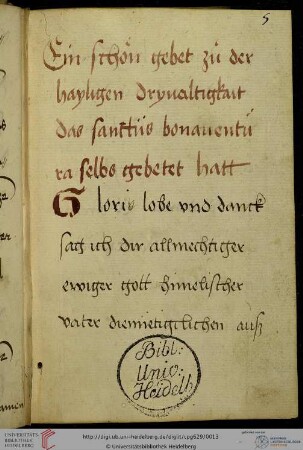 5
Ein schön gebet zů der
hayligen dryualtigkait
das sanktüs bonauentü
ra selbs gebetet hatt
Gloris lobe vnd danck
sag ich dir allmechtiger
ewiger gott himelischer
vater diemietigclichen auß
Bibl:
Univ:
Heidelb:
UNIVERSITÄTS-
BIBLIOTHEK
HEIDELBERG
http://digi.ub.uni-heidelberg.de/diglit/cpg629/0013
© Universitätsbibliothek Heidelberg